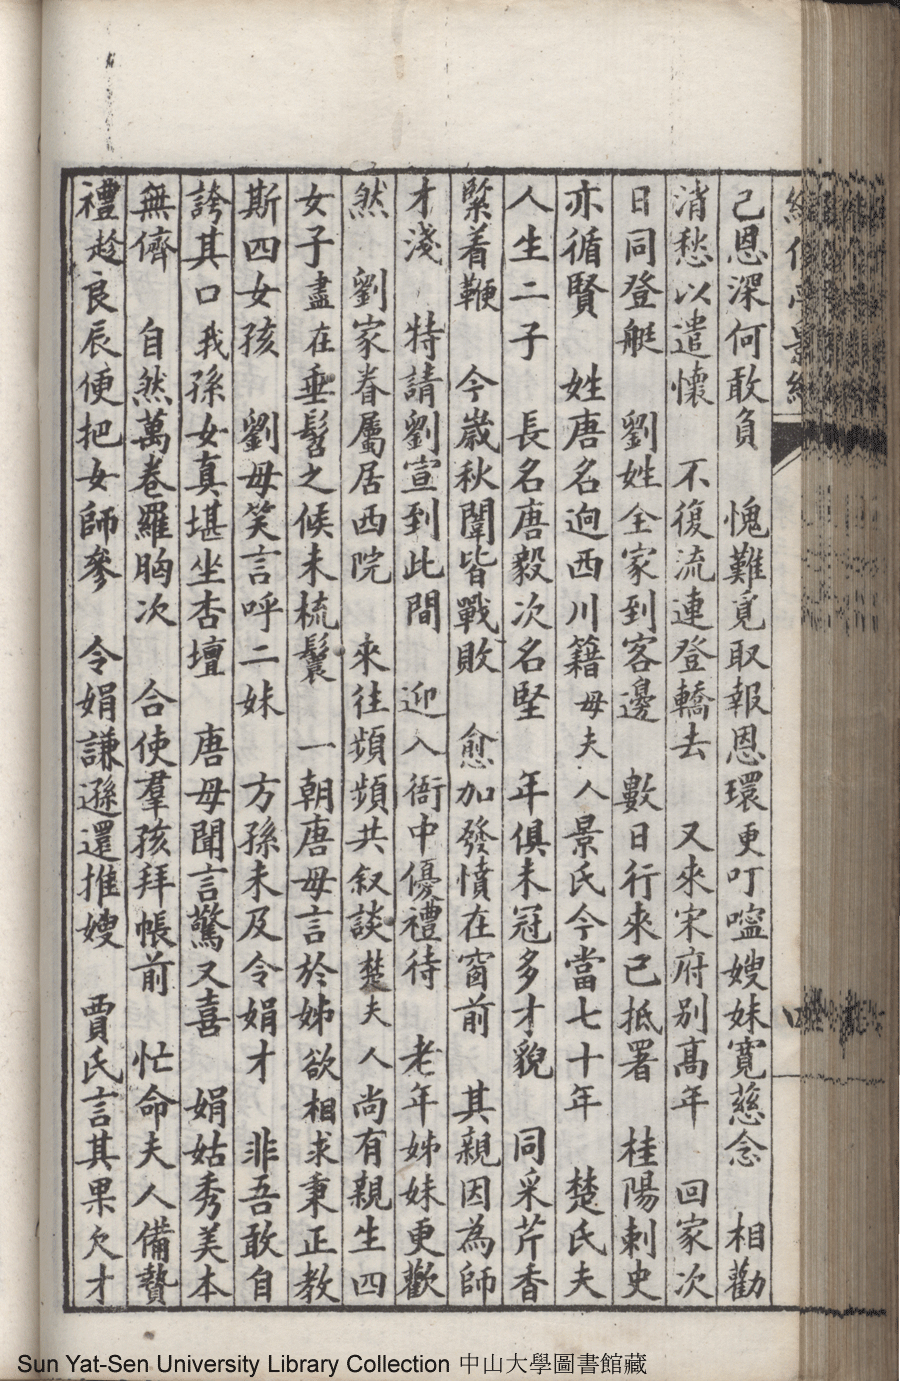 己恩深何敢負 愧難覓取報恩環更叮嚀嫂妹寬慈念 相勸
消愁以遣懷 不復流連登轎去 又來宋府别高年 回家次
日同登艇 劉姓全家到客邊 數日行來已抵署 桂陽刺史
亦循賢 姓唐名逈西川籍母夫人景氏今當七十年 楚氏夫
人生二子 長名唐毅次名堅 年俱未冠多才貌 同采芹香
緊着鞭 今歲秋闈皆戰敗 愈加發憤在窗前 其親因為師
才淺 特請劉宣到此間 迎入衙中優禮待 老年姊妹更歡
然 劉家眷屬居西院 來往頻頻共叙談楚夫人尚有親生四
女子盡在垂髫之候未梳鬟 一朝唐母言於姊欲相求秉正教
斯四女孩 劉母笑言呼二妹 方孫未及令娟才 非吾敢自
誇其口我孫女真堪坐杏壇 唐母聞言驚又喜 娟姑秀美本
無儕 自然萬卷羅胸次 合使羣孩拜帳前 忙命夫人備贄
禮趁良辰便把女師參 令娟謙遜還推嫂 賈氏言其果欠才
Sun Yat-Sen University Library Collection 中山大學圖書館藏